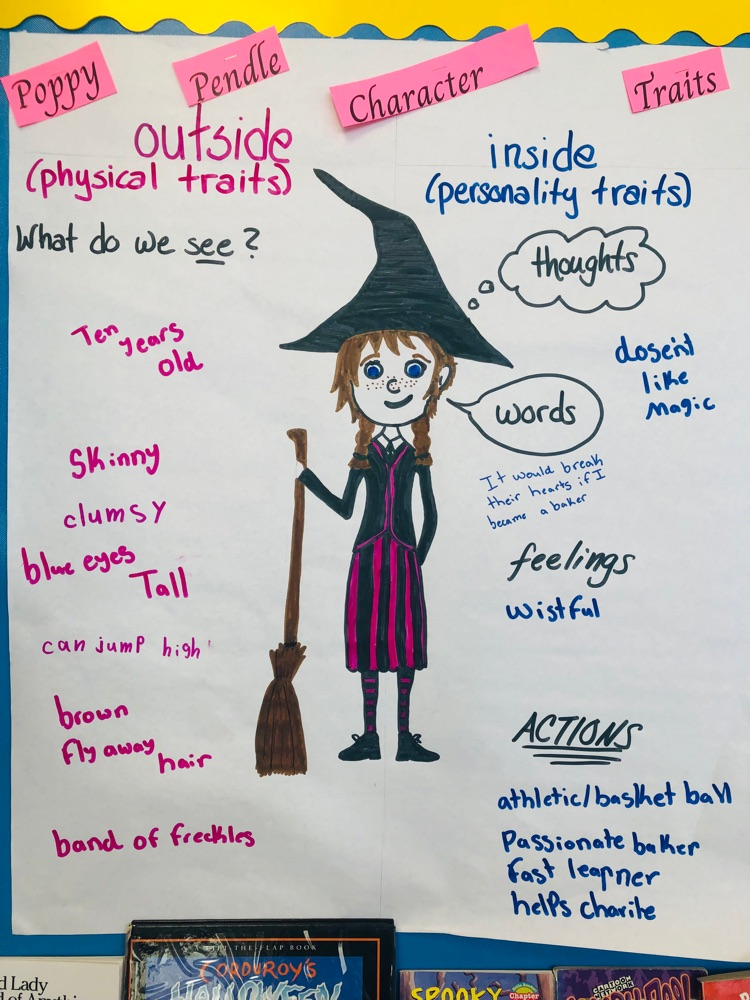 Poppy Pendle Character Traits
outside
(physical traits)
What do we see?
Ten years
old
Skinny
clumsy
blue eyes
Tall
can jump high
brown
fly away
hair
band of freckles
inside
(personality traits)
thoughts
dosen't
like
Magic
words
It would break
their hearts if I
became a baker
feelings
wistful
ACTIONS
athletic/basket ball
Passionate baker
fast leapner
helps charite
d Lady
A LIFT-THE-FLAP BOOK
CORDUROY'S
HALLOWEEN
SPOOKY
Chapter
CARTOON
NETWORK